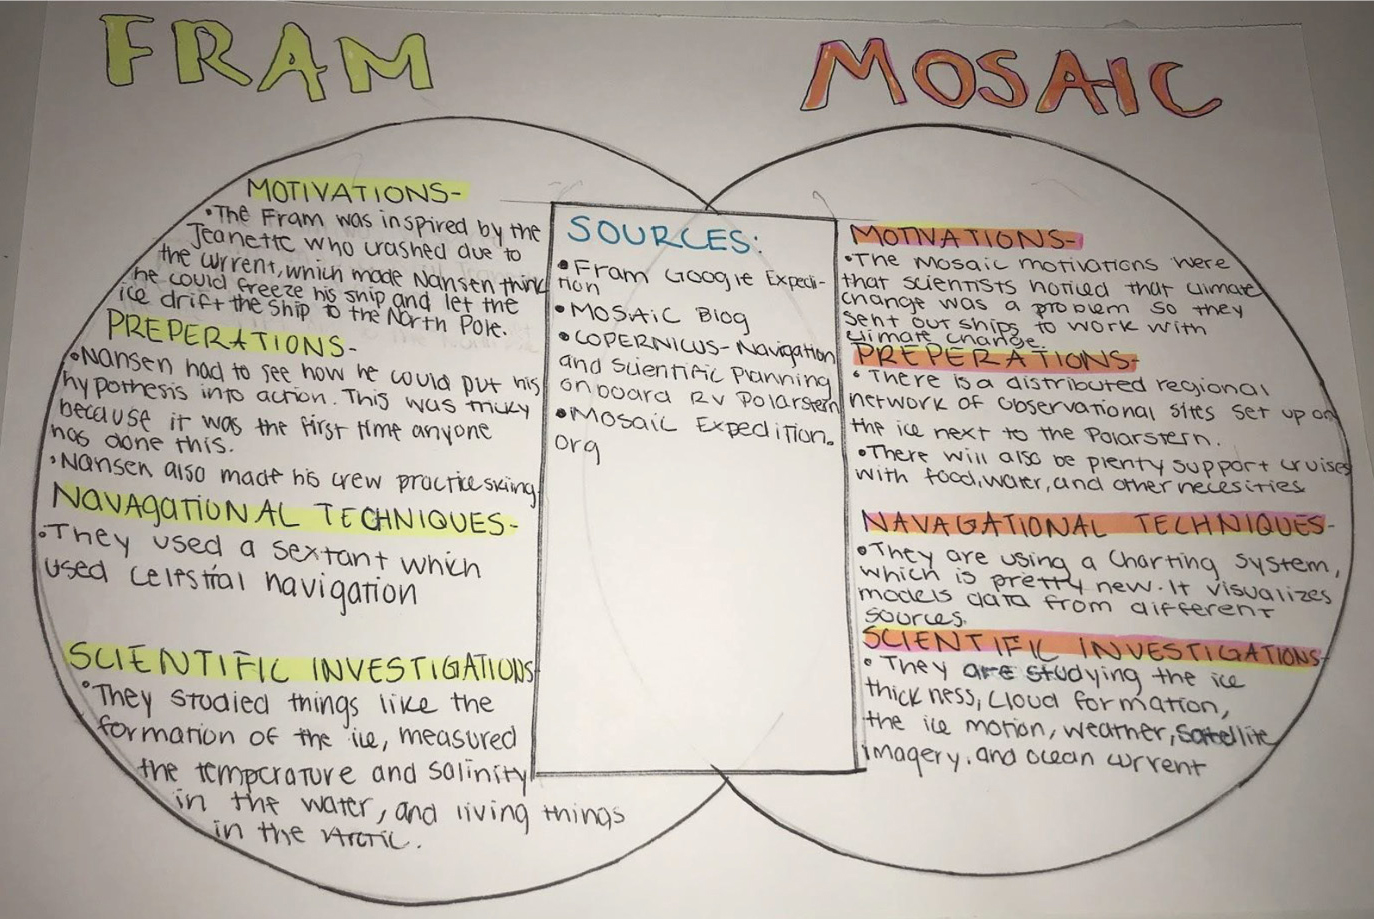 FRAM
MOTIVATIONS-
•The Fram was inspired by the
Jeanette who crashed due to
the current, which made Nansen think
he could freeze his ship and let the
ice drift the ship to the North Pole.
PREPERATIONS-
•Nansen had to see how he could put his
hypothesis into action. This was tricky
because it was the first time anyone
has done this.
•Nansen also made his crew practice skiing
NAVAGATIONAL TECHNIQUES-
•They used a sextant which
used celestial navigation
SCIENTIFIC INVESTIGATIONS
•They studied things like the
formation of the ice, measured
the temperature and salinity
in the water, and living things
in the Arctic.
SOURCES:
•Fram Google Expedi-
tion
•MOSAiC Blog
•COPERNICUS-Navigation
and Scientific Planning
onboard RV Polarstern
•Mosaic Expedition.
org
MOSAIC
MOTIVATIONS-
•The Mosaic motivations were
that scientists noticed that climate
change was a problem so they
sent out ships to work with
climate change.
PREPERATIONS-
•There is a distributed regional
network of observational sites set up on
the ice next to the Polarstern.
•There will also be plenty support cruises
with food, water, and other necesities
NAVAGATIONAL TECHNIQUES-
•They are using a Charting system,
which is pretty new. It visualizes
models data from different
sources.
SCIENTIFIC INVESTIGATIONS-
•They are studying the ice
thickness, cloud formation,
the ice motion, weather, satellite
imagery, and ocean current